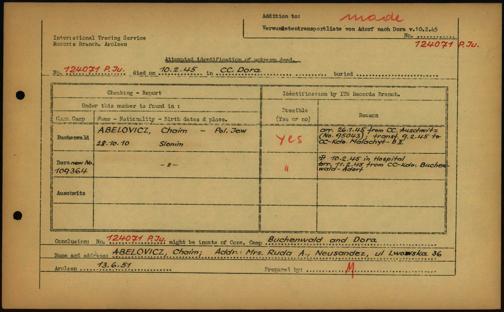 Addition to: made
Verwundetentransportliste von Adorf nach Dora v.10.2.45
No. 124071 P.Ju.
International Tracing Service
Records Branch, Arolsen
Attempted identification of unknown dead.
No. 124071 P.Ju. died on 10.2.45 in CC. Dora. buried
Checking - Report
Identification by ITS Records Branch.
Under this number is found in :
Possible (Yes or no)
Reason
Conc Camp
Name - Nationality - Birth dates & place.
Buchenwald
ABELOVICZ, Chaim - Pol. Jew
28.10.10 Slonim
yes
arr. 26.1.45 from CC. Auschwitz
(No. 95043); transf. 9.2.45 to
CC-Kdo. Malachyt-B.II.
Dora new No.
109364
- " -
"
10.2.45 in Hospital
arr. 11.2.45 from CC-Kdo. Buchen-
wald-Adorf
Auschwitz
Conclusion: No. 124071 P.Ju. might be inmate of Conc. Camp Buchenwald and Dora.
Name and address: ABELOVICZ, Chaim; Addr.: Mrs. Ruda A., Neusandez, ul Lwowska 36
Arolsen 13.6.51 Prepared by: M